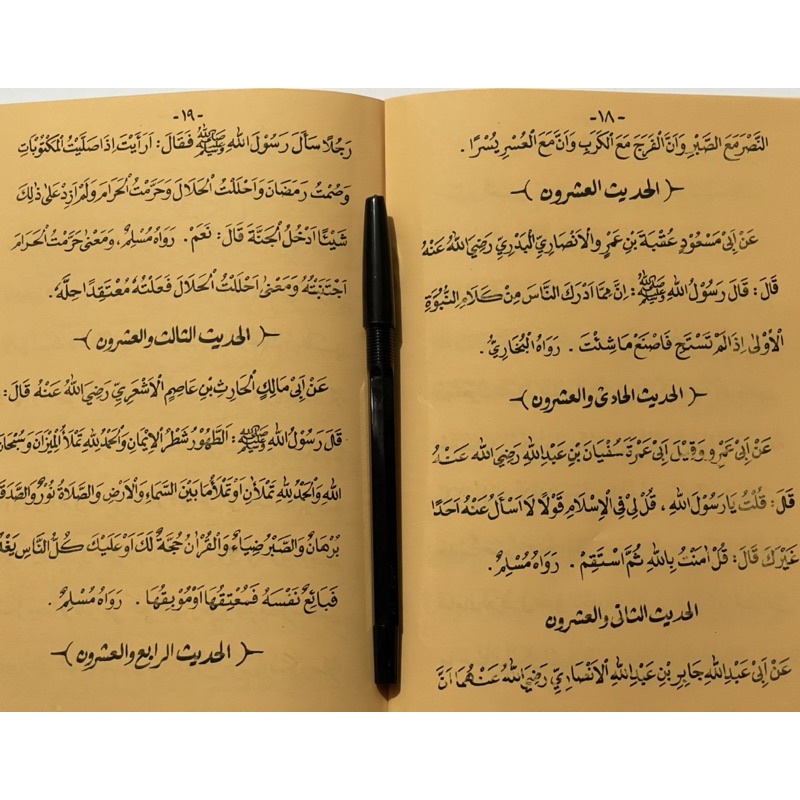 -١٨-
النَّصْرَ مَعَ الصَّبْرِ وَاَنَّ الْفَرَجَ مَعَ الْكَرْبِ وَاَنَّ مَعَ الْعُسْرِ يُسْرًا .
﴿ الحديث العشرون ﴾
عَنْ اَبِيْ مَسْعُوْدٍ عُقْبَةَ بْنِ عَمْرٍو الْاَنْصَارِيِّ الْبَدْرِيِّ رَضِيَ اللهُ عَنْهُ
قَالَ : قَالَ رَسُوْلُ اللهِ ﷺ : اِنَّ مِمَّا اَدْرَكَ النَّاسَ مِنْ كَلَامِ النُّبُوَّةِ
الْاُوْلٰى اِذَا لَمْ تَسْتَحِ فَاصْنَعْ مَا شِئْتَ . رَوَاهُ الْبُخَارِيُّ .
﴿ الحديث الحادى والعشرون ﴾
عَنْ اَبِيْ عَمْرٍو وَقِيْلَ اَبِيْ عَمْرَةَ سُفْيَانَ بْنِ عَبْدِ اللهِ رَضِيَ اللهُ عَنْهُ
قَلَ : قُلْتُ يَا رَسُوْلَ اللهِ ، قُلْ لِيْ فِي الْاِسْلَامِ قَوْلًا لَا اَسْأَلُ عَنْهُ اَحَدًا
غَيْرَكَ قَالَ : قُلْ اٰمَنْتُ بِاللهِ ثُمَّ اسْتَقِمْ . رَوَاهُ مُسْلِمٌ .
الحديث الثانى والعشرون
عَنْ اَبِيْ عَبْدِ اللهِ جَابِرِ بْنِ عَبْدِ اللهِ الْاَنْصَارِيِّ رَضِيَ اللهُ عَنْهُمَا اَنَّ
-١٩-
رَجُلًا سَأَلَ رَسُوْلَ اللهِ ﷺ فَقَالَ : اَرَاَيْتَ اِذَا صَلَّيْتُ الْمَكْتُوْبَاتِ
وَصُمْتُ رَمَضَانَ وَاَحْلَلْتُ الْحَلَالَ وَحَرَّمْتُ الْحَرَامَ وَلَمْ اَزِدْ عَلٰى ذٰلِكَ
شَيْئًا اَدْخُلُ الْجَنَّةَ قَالَ : نَعَمْ . رَوَاهُ مُسْلِمٌ ، وَمَعْنٰى حَرَّمْتُ الْحَرَامَ
اِجْتَنَبْتُهُ وَمَعْنٰى اَحْلَلْتُ الْحَلَالَ فَعَلْتُهُ مُعْتَقِدًا حِلَّهُ .
﴿ الحديث الثالث والعشرون ﴾
عَنْ اَبِيْ مَالِكٍ الْحَارِثِ بْنِ عَاصِمٍ الْاَشْعَرِيِّ رَضِيَ اللهُ عَنْهُ قَالَ :
قَالَ رَسُوْلُ اللهِ ﷺ : اَلطَّهُوْرُ شَطْرُ الْاِيْمَانِ وَالْحَمْدُ لِلّٰهِ تَمْلَأُ الْمِيْزَانَ وَسُبْحَانَ
اللهِ وَالْحَمْدُ لِلّٰهِ تَمْلَآنِ اَوْ تَمْلَأُ مَا بَيْنَ السَّمَاءِ وَالْاَرْضِ وَالصَّلَاةُ نُوْرٌ
بُرْهَانٌ وَالصَّبْرُ ضِيَاءٌ وَالْقُرْاٰنُ حُجَّةٌ لَكَ اَوْ عَلَيْكَ كُلُّ النَّاسِ
فَبَائِعٌ نَفْسَهُ فَمُعْتِقُهَا اَوْ مُوْبِقُهَا . رَوَاهُ مُسْلِمٌ .
﴿ الحديث الرابع والعشرون ﴾